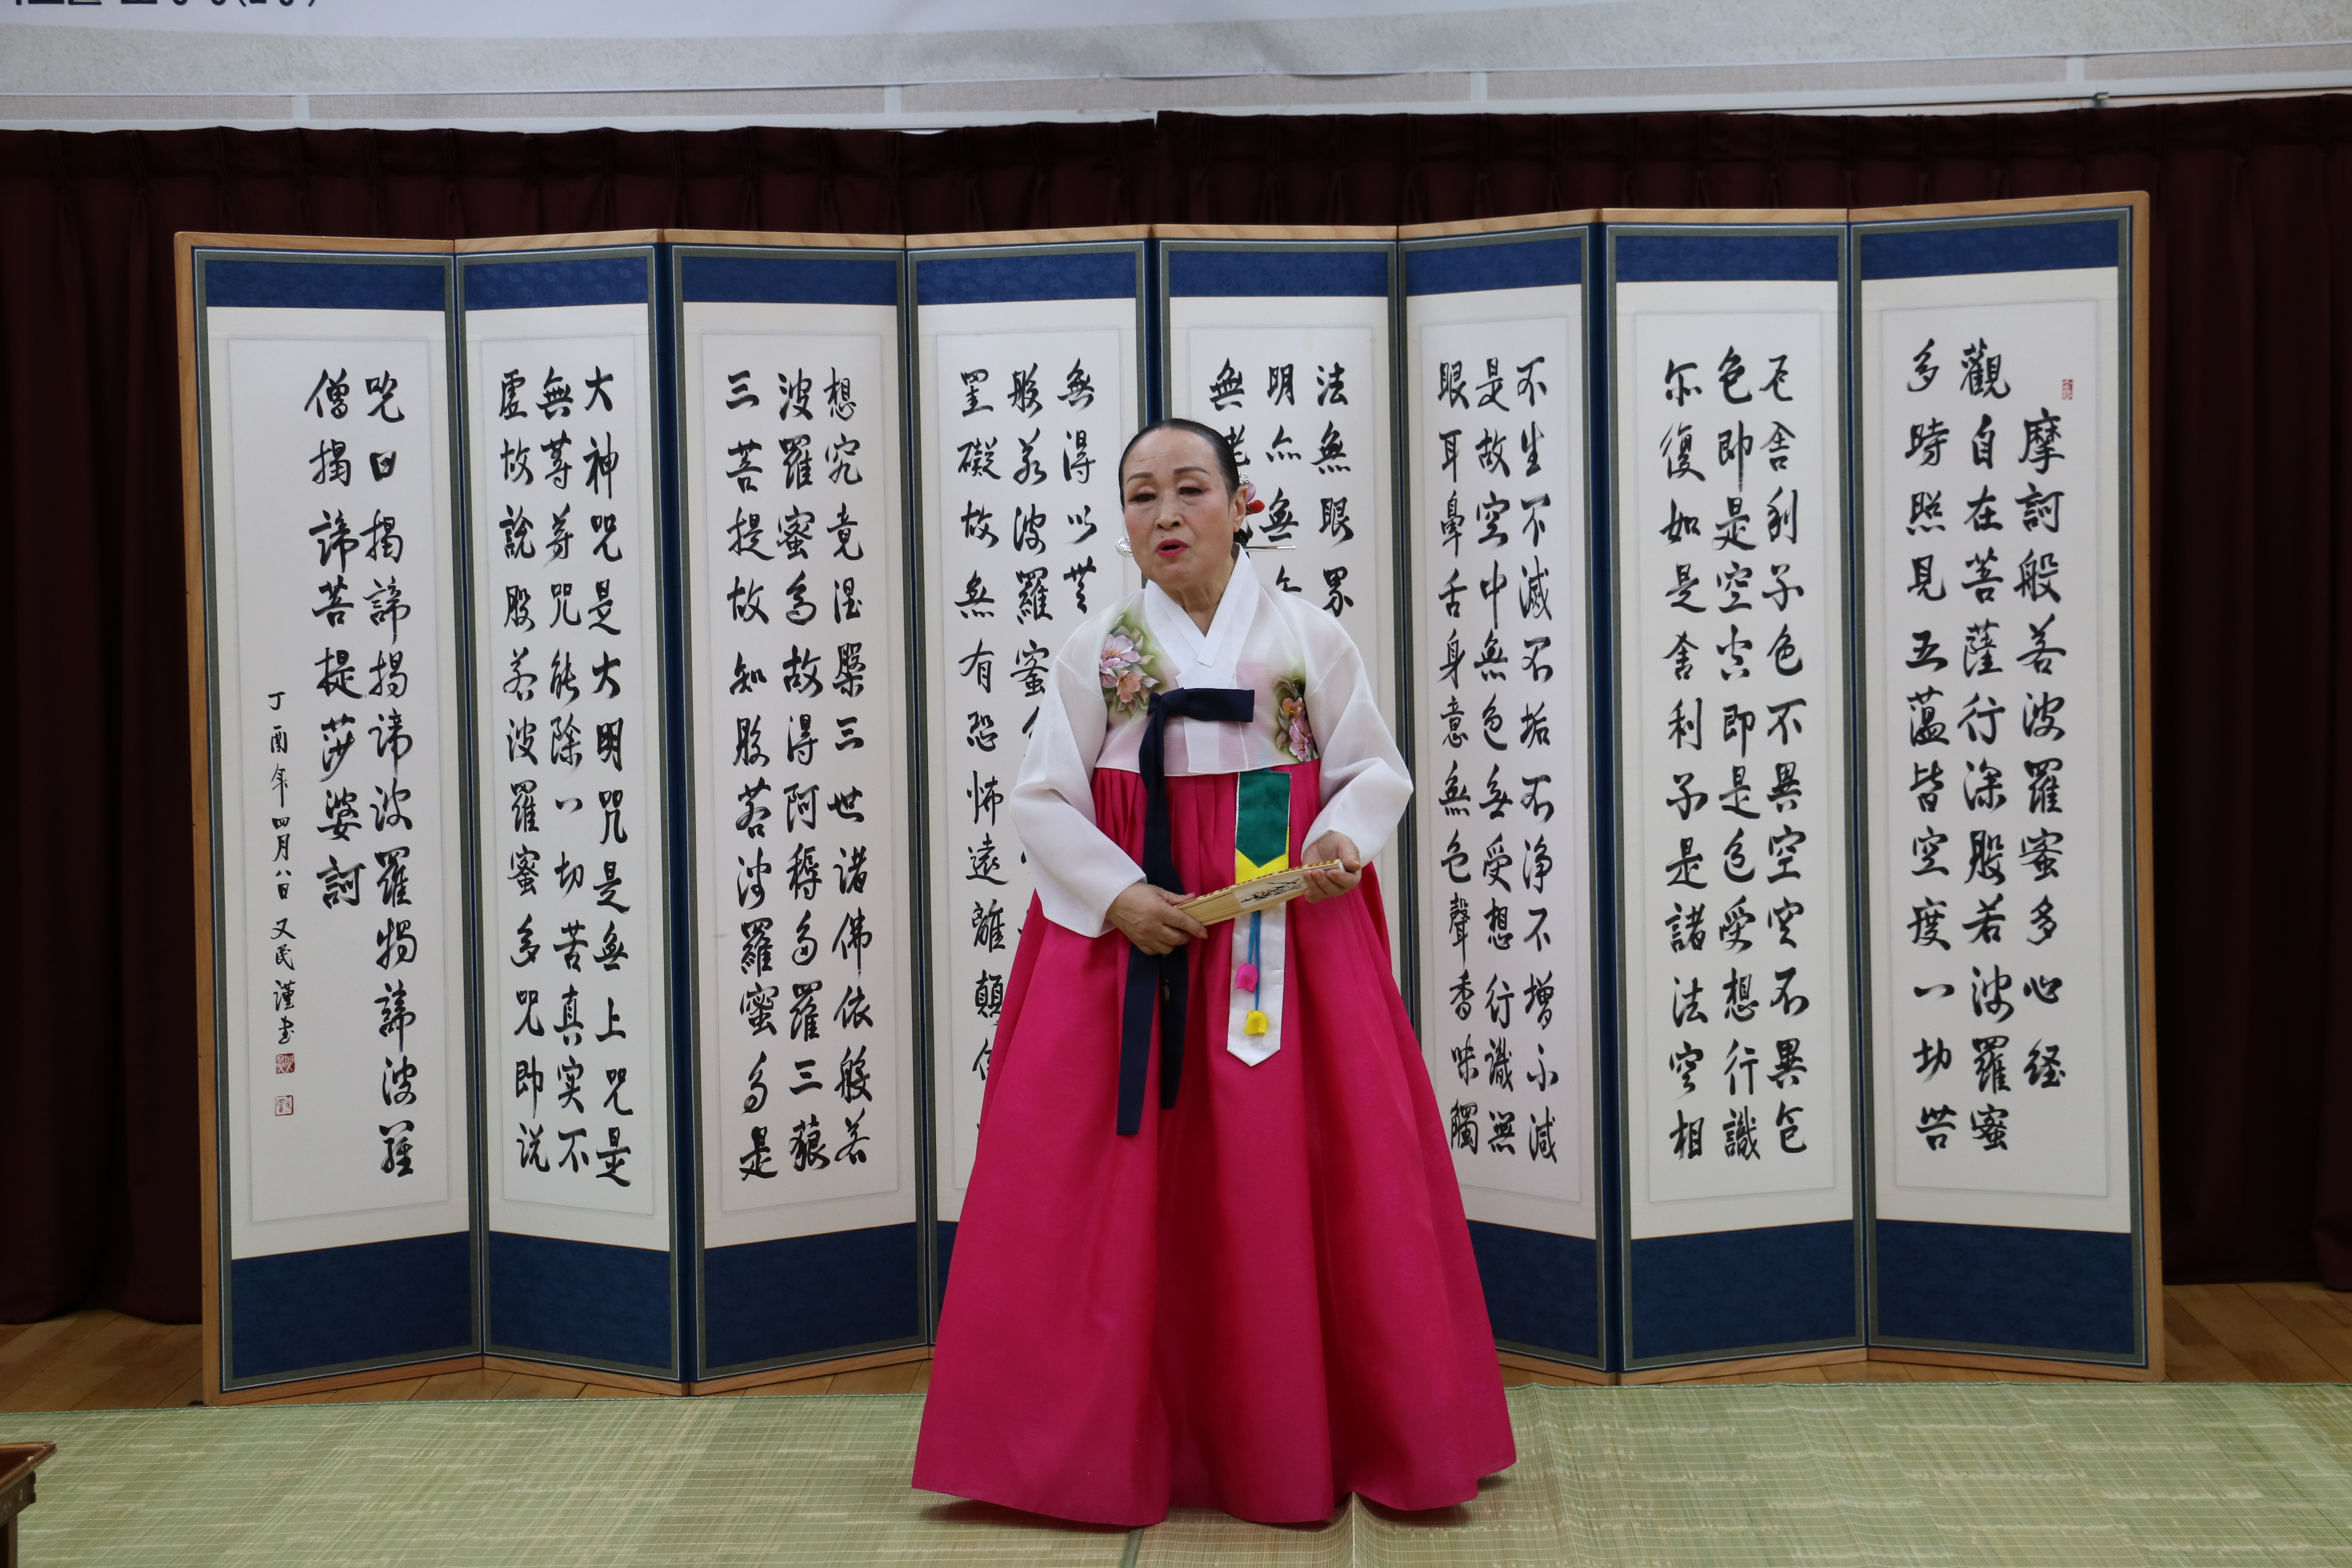 摩訶般若波羅蜜多心経
觀自在菩薩行深般若波羅蜜
多時照見五蘊皆空度一切苦
舍利子色不異空空不異色
色即是空空即是色受想行識
亦復如是舍利子是諸法空相
不生不滅不垢不淨不增不減
是故空中無色無受想行識無
眼耳鼻舌身意無色聲香味觸
法無眼界
明亦無
無老
無得以無
般若波羅蜜
罣礙故無有恐怖遠離顛
想究竟涅槃三世諸佛依般若
波羅蜜多故得阿耨多羅三藐
三菩提故知般若波羅蜜多是
大神呪是大明呪是無上呪是
無等等呪能除一切苦真実不
虛故說般若波羅蜜多呪即说
呪曰揭諦揭諦波羅揭諦波羅
僧揭諦菩提莎婆訶
丁酉年四月八日又民謹書